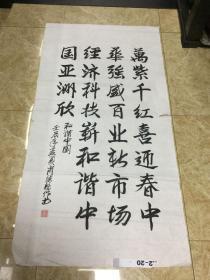 萬紫千红喜迎春中
华强盛百业转市场
经济科技崭和谐中
国亚洲欣
和谐中国
2-20